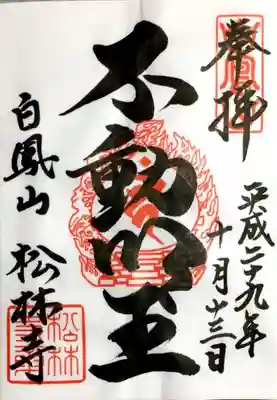 奉拝
平成二十九年
十月廿三日
不動明王
白鳳山 松林寺
松林